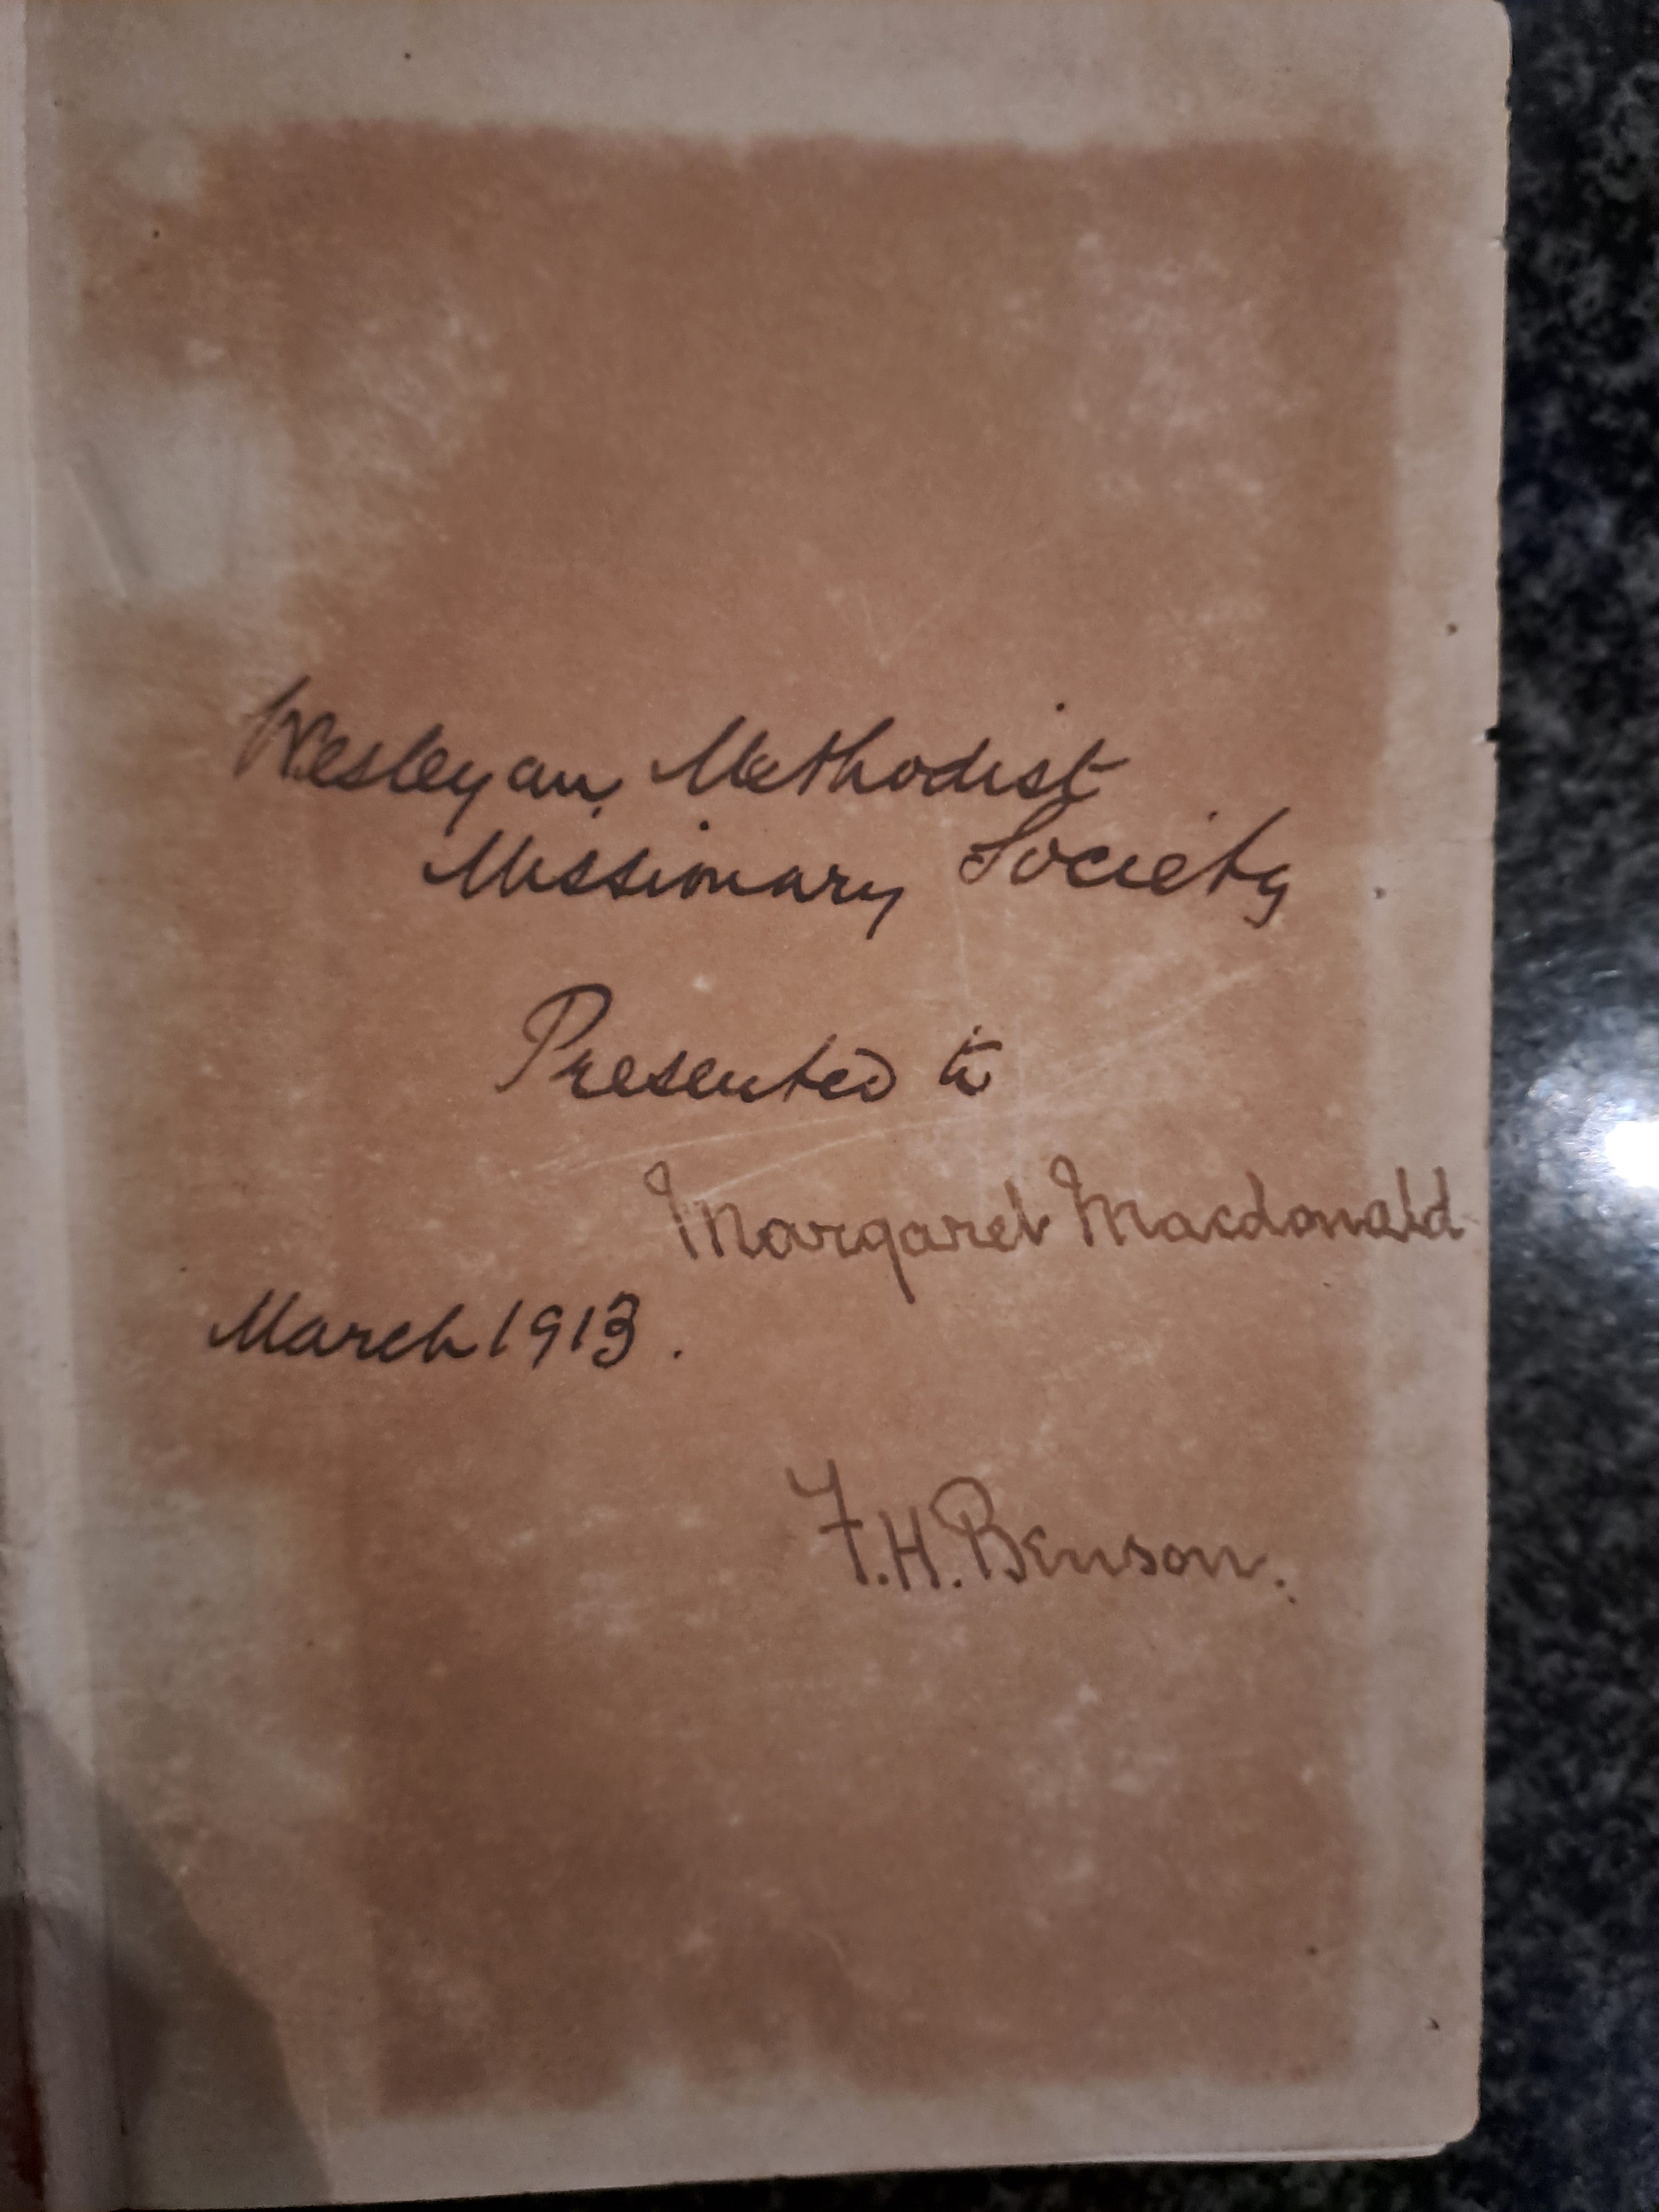 Wesleyan Methodist
Missionary Society
Presented to
Margaret Macdonald
March 1913.
F.H. Benson.